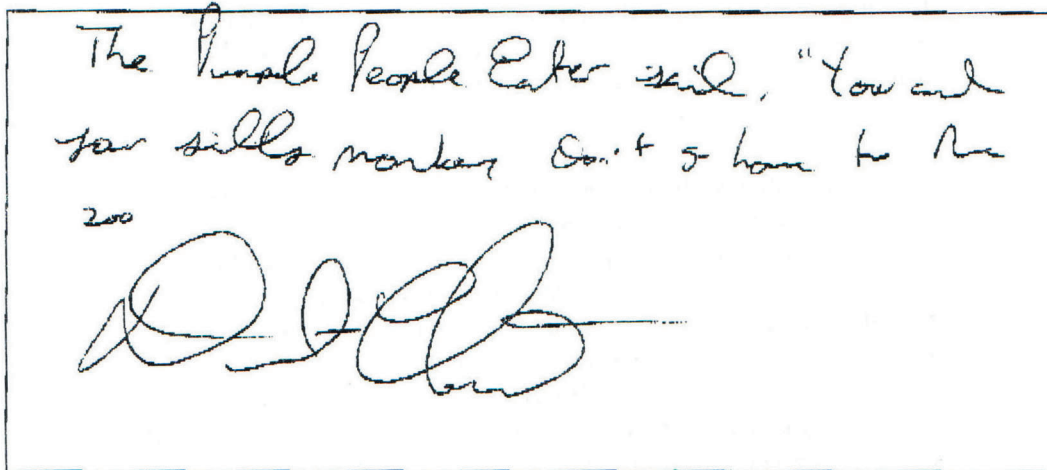 The Purple People Eater said, "You and
your silly monkey Don't go home to the
zoo